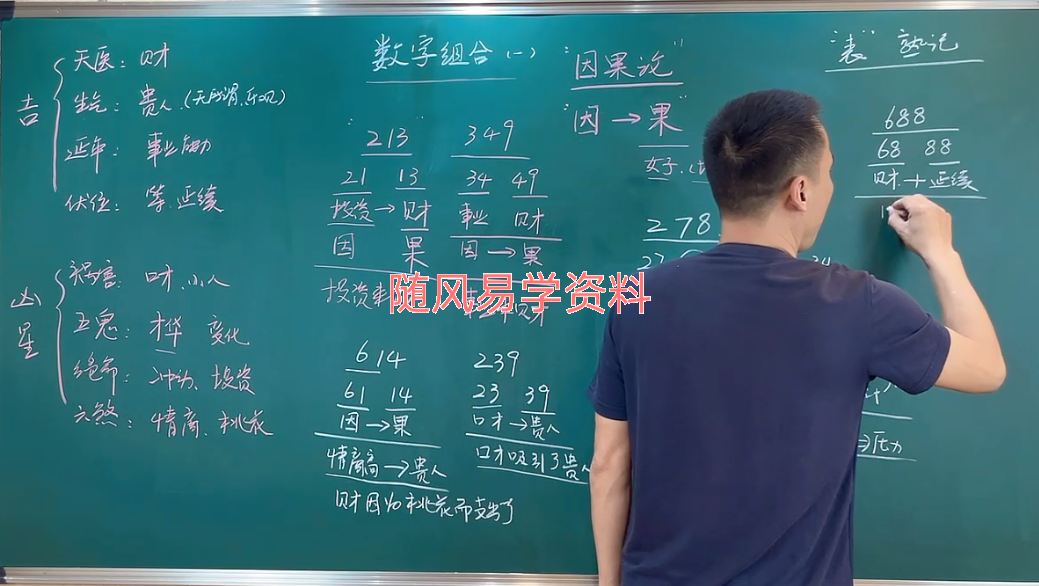 数字组合(一)
"因果论"
"表" 熟记
吉
天医：财
生气：贵人.(无所谓.乐观)
延年：事业能力
伏位：等.延续
凶星
祸害：口才.小人
五鬼：才华 变化
绝命：冲动、投资
六煞：情商、桃花
"213"
21 13
投资→财
因 果
349
34 49
事业 财
因→果
614
61 14
因→果
情商高→贵人
财因为桃花而支出了
239
23 39
口才→贵人
口才吸引了贵人
"因→果"
女子
278
27
688
68 88
财+延续
⇒压力
随风易学资料